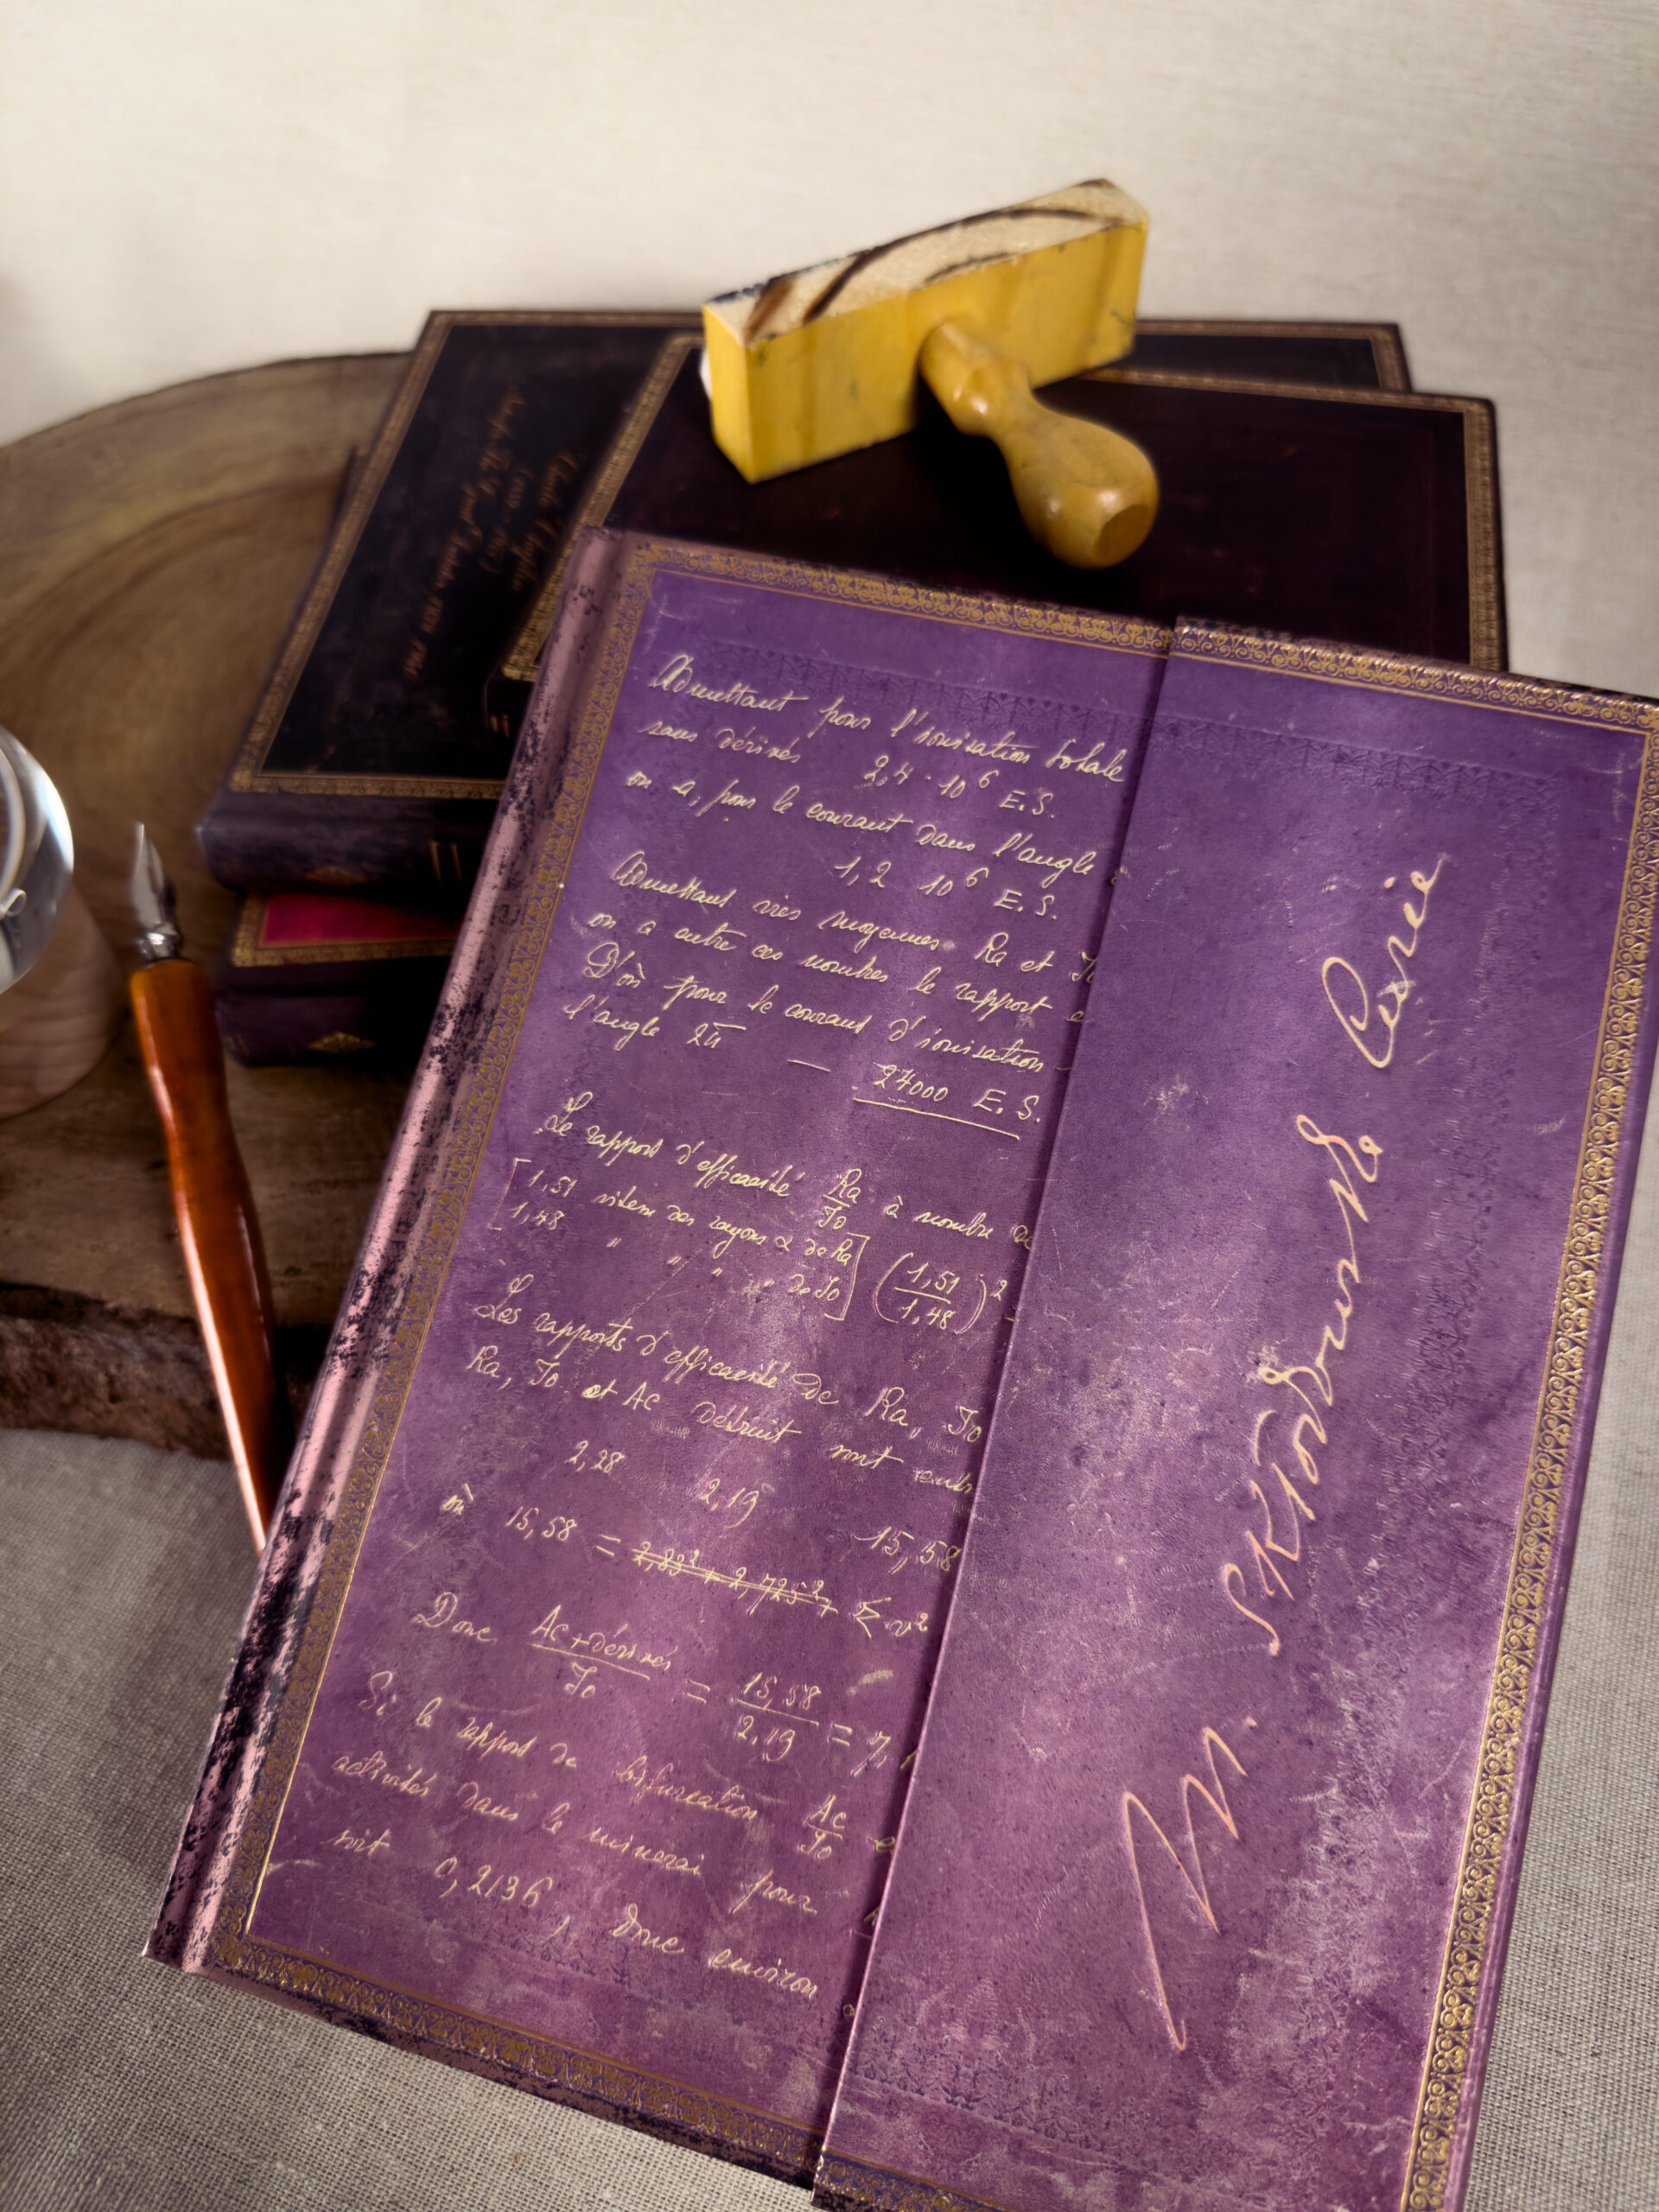 Admettant pour l'ionisation totale
sans dérivés 2,4 · 10⁶ E.S.
on a, pour le courant dans l'angle
1,2 10⁶ E.S.
Admettant vies moyennes Ra et Io
on a entre ces nombres le rapport
D'où pour le courant d'ionisation
l'angle 2π — 24000 E.S.
Le rapport d'efficacité Ra/Io à nombre de
[1,51 vitesse des rayons α de Ra
1,48 " " " " de Io] (1,51/1,48)²
Les rapports d'efficacité de Ra, Io
Ra, Io et Ac détruit sont entr
2,28 2,19 15,58
où 15,58 = 2,88² + 2,725² + Σv²
Donc Ac+dérivés/Io = 15,58/2,19 = 7,1
Si le rapport de bifurcation Ac/Io e
activités dans le minerai pour
soit 0,2136, donc environ
M. Skłodowska Curie